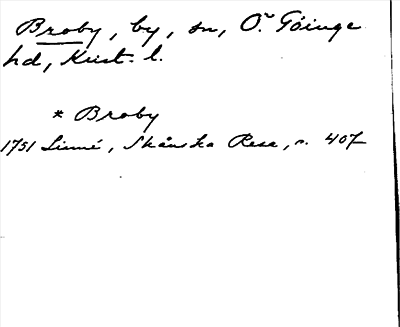 Broby, by, sn, Ö. Göinge
hd, Krist. l.
* Broby
1751 Linné, Skånska Resa, s. 407